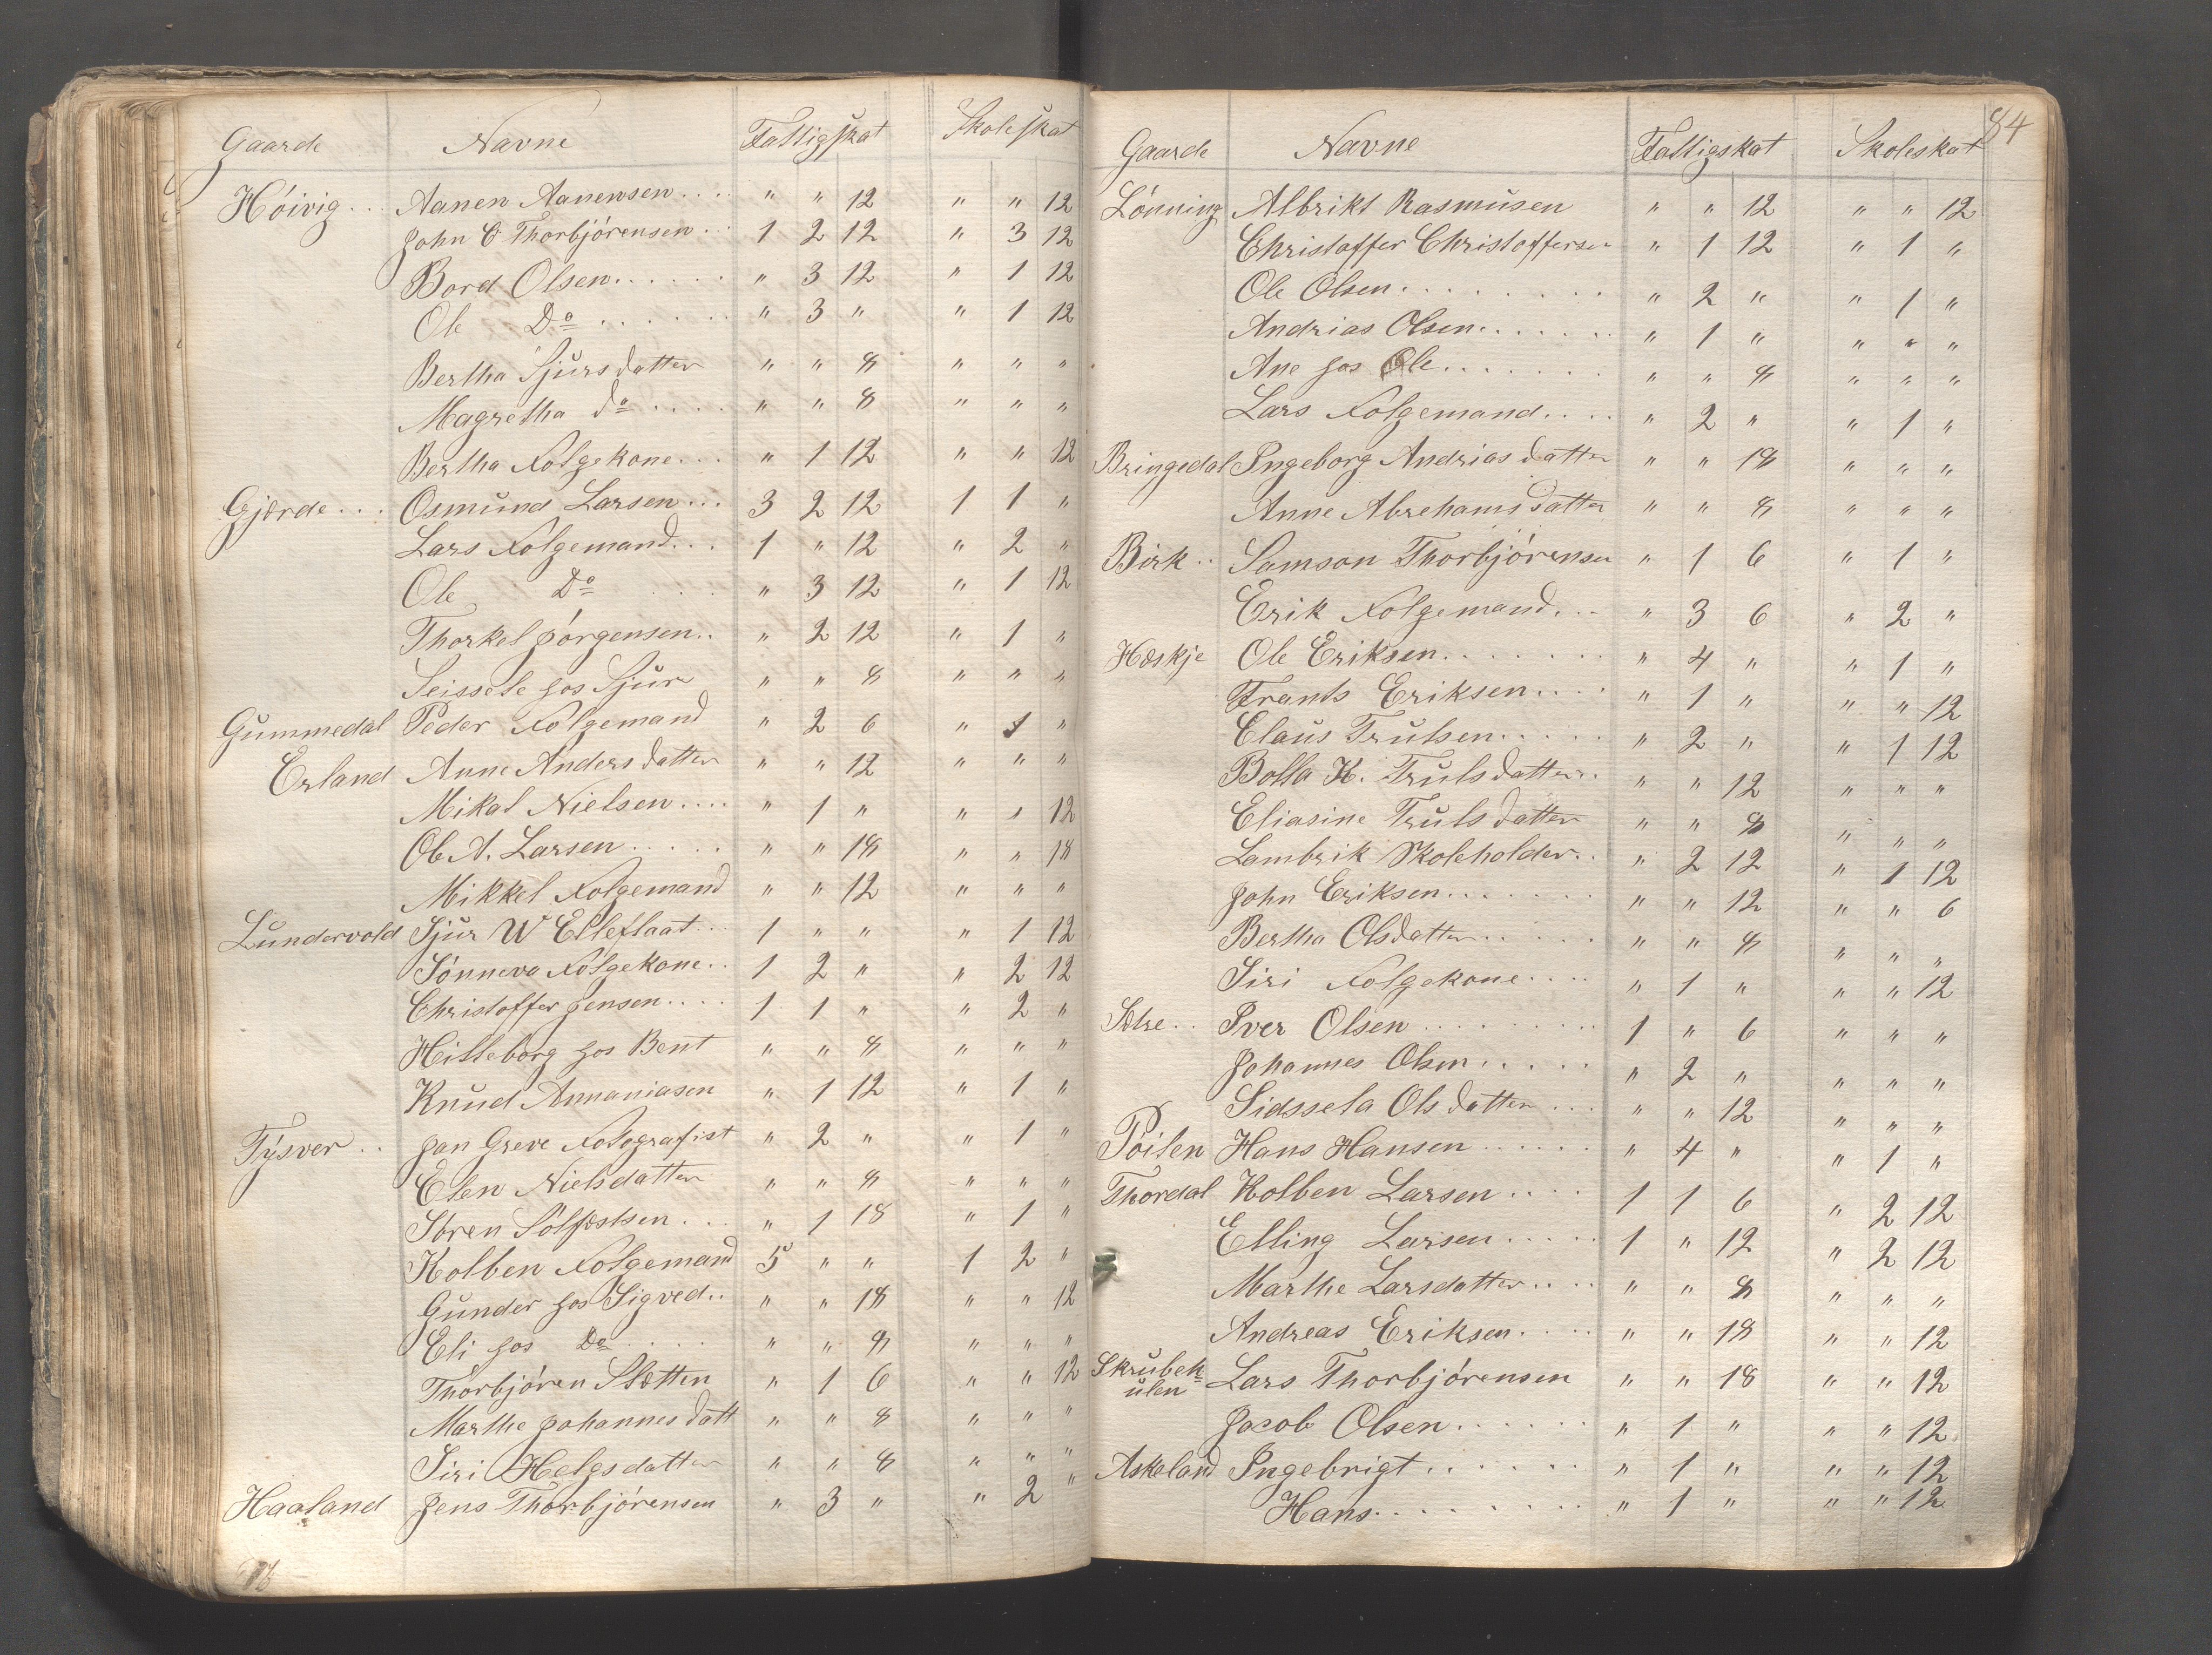 Gaarde Navne Fattigskat Skoleskat
Höivig... Aanen Aanensen.... " " 12 " " 12
John C Thorbjörensen.. 1 2 12 " 3 12
Bord Olsen...... " 3 12 " 1 12
Ole Do...... " 3 " " 1 12
Bertha Sjursdatter " " 8 " " "
Magretha do.... " " 8 " " "
Bertha Folgekone... " 1 12 " " 12
Gjerde... Osmund Larsen... 3 2 12 1 1 "
Lars Folgemand... 1 " 12 " 2 "
Ole Do " 3 12 " 1 12
Thorkel Jörgensen.. " 2 12 " 1 "
Seissele hos Sjur " " 8 " " "
Gummedal Peder Folgemand " 2 6 " 1 "
Erland Anne Andersdatter " " 12 " " "
Mikal Nielsen.... " 1 " " " 12
Ole A. Larsen..... " " 18 " " 18
Mikkel Folgemand " " 12 " " "
Lundervold Sjur W Elleflaat... 1 " " " 1 12
Sönneva Folgekone.. 1 2 " " 2 12
Christoffer Jensen.... 1 1 " " 2 "
Hilleborg hos Bent " " 8 " " "
Knud Annaniasen " 1 12 " 1 "
Tysver.. Jan Greve Fotografist " 2 " " 1 "
Elen Nielsdatter " " 8 " " "
Sören Sölfestsen... " 1 18 " 1 "
Kolben Folgemand 5 " " 1 2 "
Gunder hos Sigved.. " " 18 " " 12
Eli hos Do " " 8 " " "
Thorbjören Sletten " 1 6 " " 12
Marthe Johannesdatt " " 8 " " "
Siri Helgsdatter " " 8 " " "
Haaland Jens Thorbjörensen " 3 " " 2 "
84
Gaarde Navne Fattigskat Skoleskat
Lönning Albrikt Rasmusen " " 12 " " 12
Christoffer Christoffersen " 1 12 " 1 "
Ole Olsen......... " 2 " " 1 "
Andrias Olsen...... " 1 " " " "
Ane hos Ole....... " " 8 " " "
Lars Folgemand.... " 2 " " 1 "
Bringedal Ingeborg Andriasdatter " " 18 " " "
Anne Abrehamsdatter " " 8 " " "
Birk.. Samson Thorbjörensen " 1 6 " 1 "
Erik Folgemand... " 3 6 " 2 "
Heskje Ole Eriksen....... " 4 " " 1 "
Frants Eriksen.... " 1 " " " 12
Claus Trulsen..... " 2 " " 1 12
Bolla K. Trulsdatter. " " 12 " " "
Eliasine Trulsdatter " " 8 " " "
Lambrik Skoleholder.. " 2 12 " 1 12
John Eriksen....... " " 12 " " 6
Bertha Olsdatter..... " " 8 " " "
Siri Folgekone.... " 1 " " " 12
Selse.. Iver Olsen......... 1 " 6 " " "
Johannes Olsen..... " 2 " " " "
Sidssela Olsdatter... " " 12 " " "
Poilen Hans Hansen...... " 4 " " 1 "
Thordal Kolben Larsen.... 1 1 6 " 2 12
Elling Larsen..... 1 " 12 " 2 12
Marthe Larsdatter.... " " 8 " " "
Andreas Eriksen.... " " 18 " " 12
Skrubek=
ulen Lars Thorbjörensen " " 18 " " 12
Jacob Olsen...... " 1 " " " 12
Askeland Ingebrigt....... " 1 " " " 12
Hans......... " 1 " " " 12